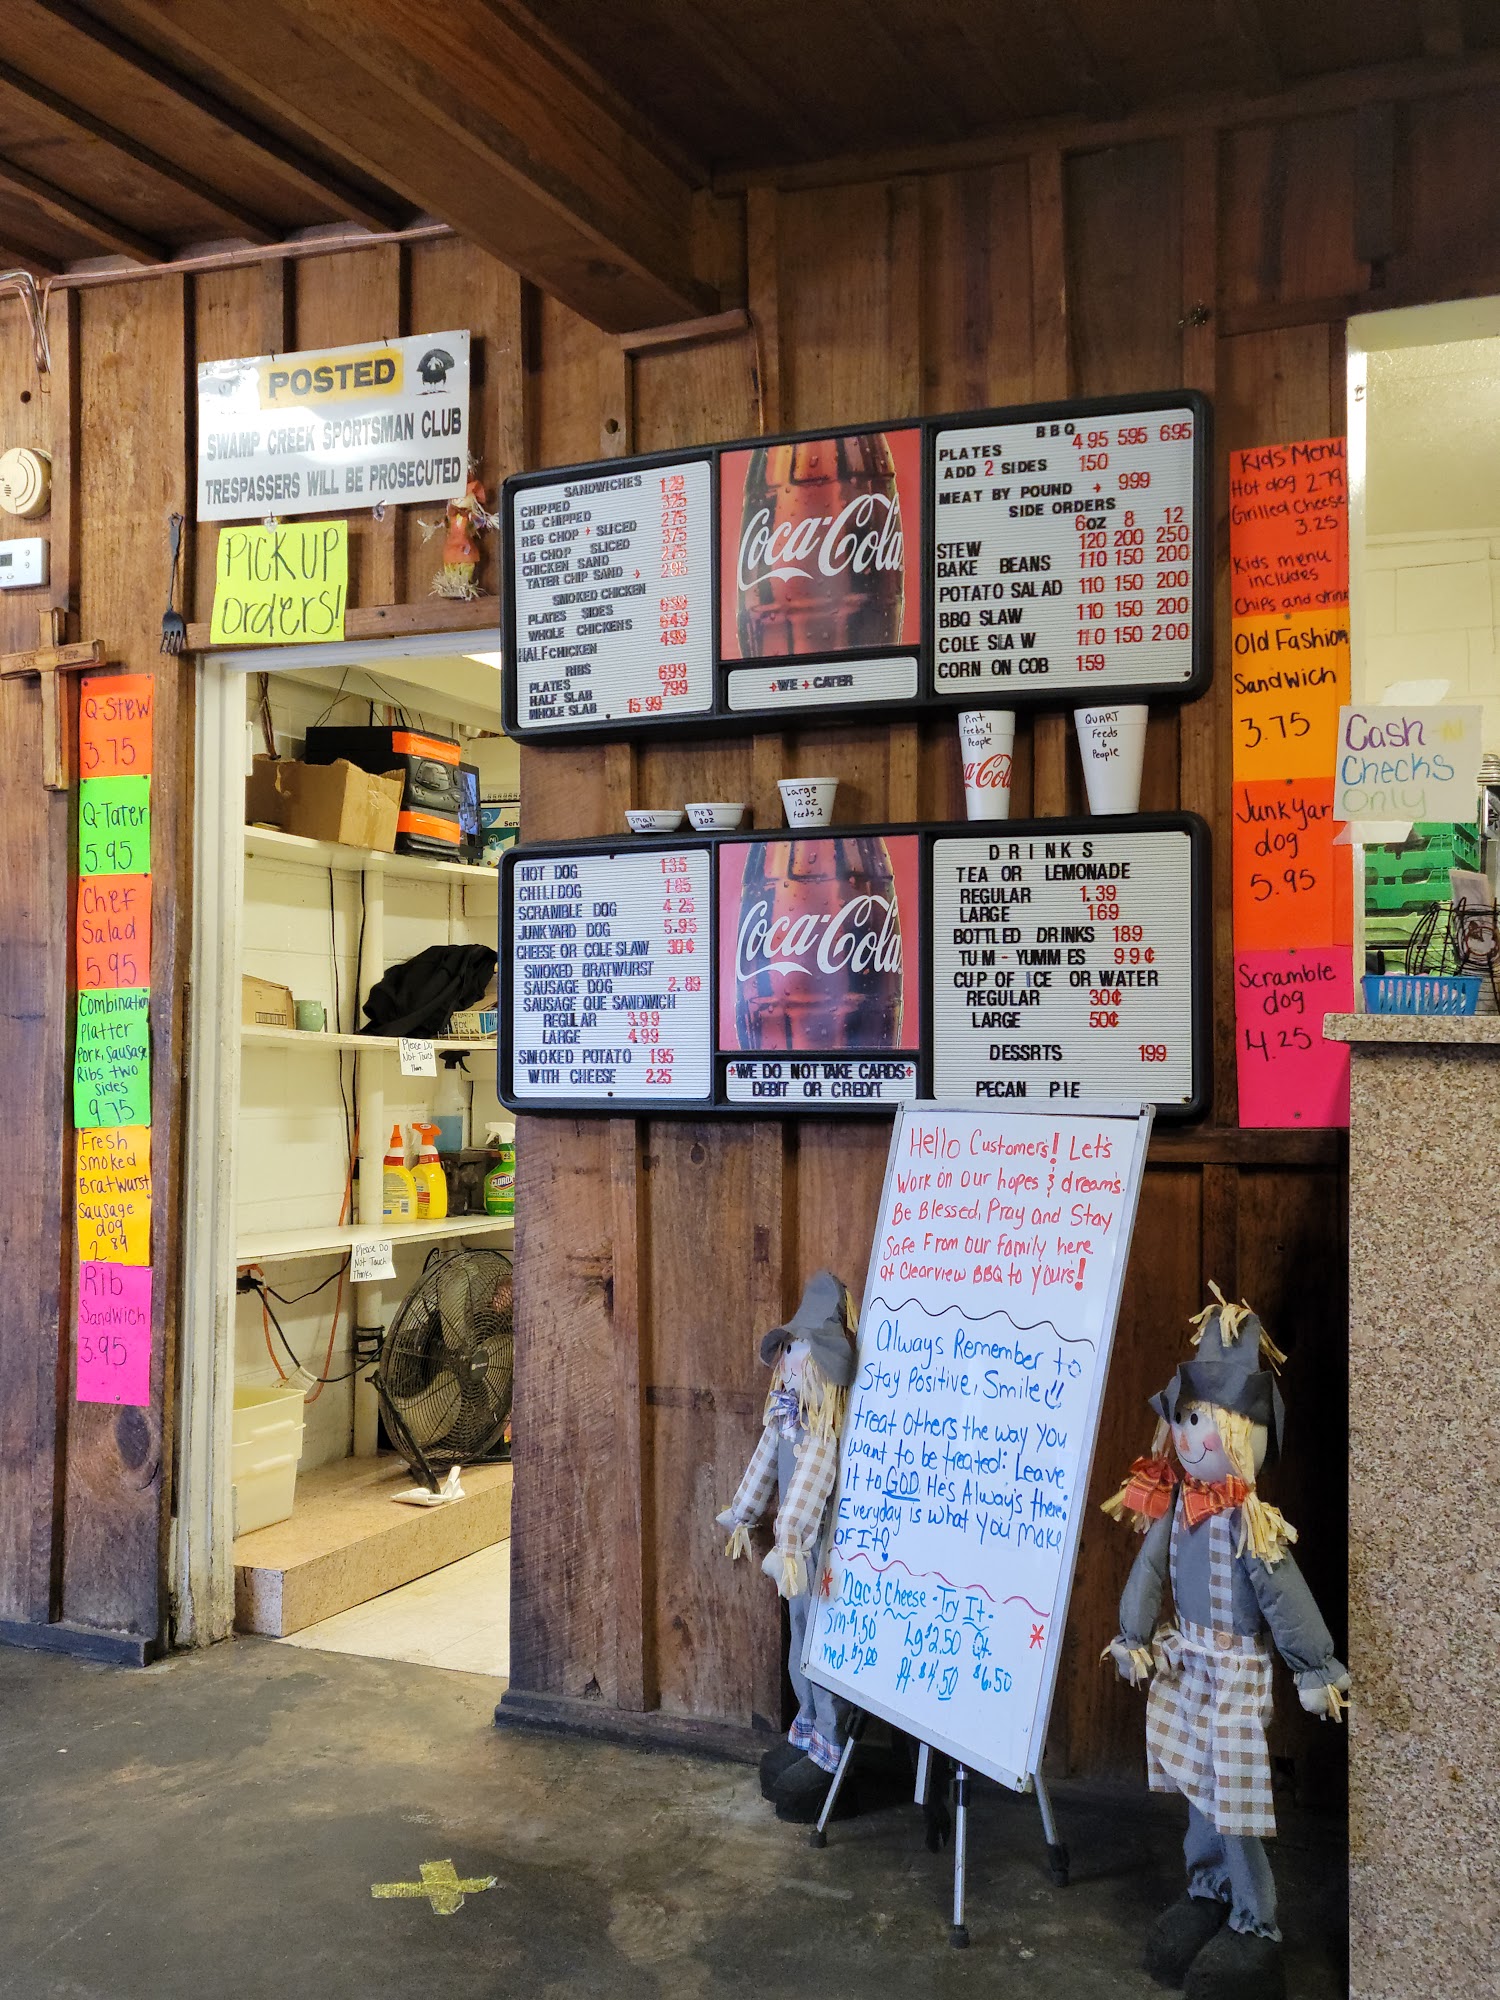 POSTED
SWAMP CREEK SPORTSMAN CLUB
TRESPASSERS WILL BE PROSECUTED
PICK UP
orders!
Q-Stew
3.75
Q-Tater
5.95
Chef
Salad
5.95
Combination
Platter
Pork, Sausage
Ribs two
sides
9.75
Fresh
Smoked
Bratwurst
Sausage
dog
2.89
Rib
Sandwich
3.95
Please Do
Not Touch
Please Do
Not Touch
Thanks
CLOROX
SANDWICHES 1.29
CHIPPED 3.25
LG CHIPPED 2.75
REG CHOP + SLICED 3.75
LG CHOP SLICED
CHICKEN SAND
TATER CHIP SAND →
SMOKED CHICKEN
PLATES SIDES
WHOLE CHICKENS 649
HALF CHICKEN 499
RIBS
PLATES 699
HALF SLAB 799
WHOLE SLAB 15 99
Coca-Cola
WE CATER
BBQ
PLATES 4 95 5 95 6 95
ADD 2 SIDES 150
MEAT BY POUND → 999
SIDE ORDERS
6oz 8 12
STEW 120 200 250
BAKE BEANS 110 150 200
POTATO SALAD 110 150 200
BBQ SLAW 110 150 200
COLE SLAW 110 150 200
CORN ON COB 159
small
MED
8oz
Large
12 oz
Feeds 2
Pint
Feeds 4
People
Coca-Cola
QUART
Feeds
6
People
HOT DOG 1.35
CHILI DOG 1.85
SCRAMBLE DOG 4 25
JUNKYARD DOG 5.95
CHEESE OR COLE SLAW 30¢
SMOKED BRATWURST
SAUSAGE DOG 2.89
SAUSAGE QUE SANDWICH
REGULAR 3.99
LARGE 4.99
SMOKED POTATO 1.95
WITH CHEESE 2.25
Coca-Cola
WE DO NOT TAKE CARDS
DEBIT OR CREDIT
DRINKS
TEA OR LEMONADE
REGULAR 1.39
LARGE 169
BOTTLED DRINKS 189
TUM-YUMMIES 99¢
CUP OF ICE OR WATER
REGULAR 30¢
LARGE 50¢
DESSRTS 199
PECAN PIE
Kids Menu
Hot dog 2.79
Grilled Cheese
3.25
Kids menu
includes
Chips and drink
Old Fashion
Sandwich
3.75
Junkyard
dog
5.95
Scramble
dog
4.25
Cash -N-
Checks
Only
Hello Customers! Let's
work on our hopes & dreams.
Be Blessed, Pray and Stay
Safe From our family here
at Clearview BBQ to Yours!
Always Remember to
Stay Positive, Smile!!
treat others the way you
want to be treated: Leave
It to GOD, He's Always there.
Everyday is what You make
OF It!
* Mac & Cheese - Try It - *
Sm. $1.50 Lg $2.50 Qt.
med. $2.00 Pt. $4.50 $6.50